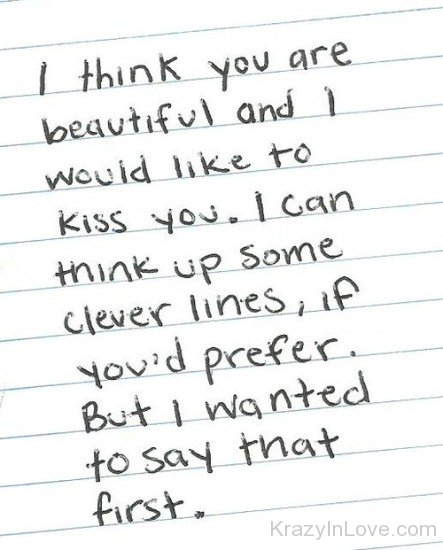 I think you are
beautiful and I
would like to
kiss you. I can
think up some
clever lines, if
you'd prefer.
But I wanted
to say that
first.
KrazyInLove.com